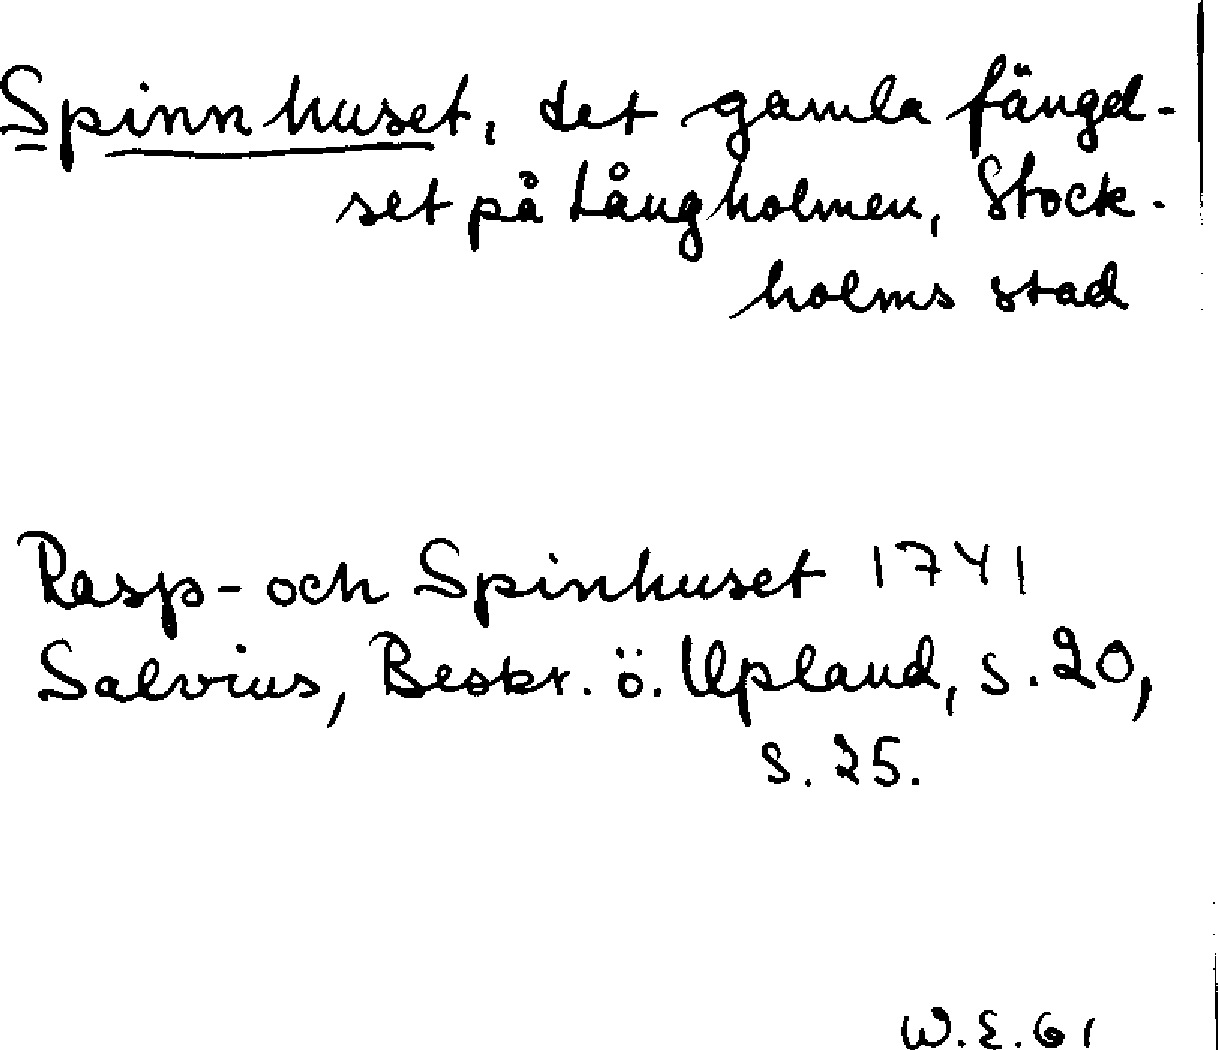 Spinnhuset, det gamla fängel-
set på Långholmen, Stock-
holms stad
Rasp- och Spinhuset 1741
Salvius, Beskr. ö. Upland, s. 20,
s. 25.
W.E. 61